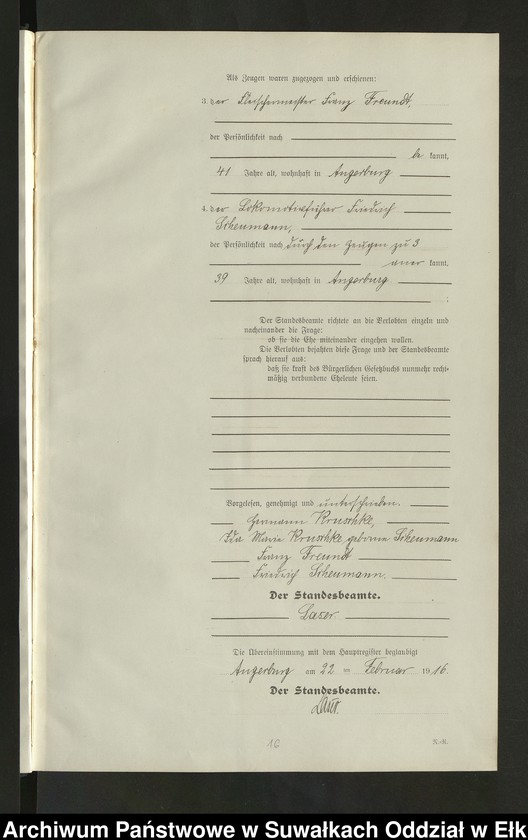 Als Zeugen waren zugezogen und erschienen:
3. der Fleischermeister Franz Freundt,
der Persönlichkeit nach
be kannt,
41 Jahre alt, wohnhaft in Angerburg
4. der Lokomotivführer Friedrich
Scheumann,
der Persönlichkeit nach durch den Zeugen zu 3
aner kannt,
39 Jahre alt, wohnhaft in Angerburg
;
Der Standesbeamte richtete an die Verlobten einzeln und
nacheinander die Frage:
ob sie die Ehe miteinander eingehen wollen.
Die Verlobten bejahten diese Frage und der Standesbeamte
sprach hierauf aus:
daß sie kraft des Bürgerlichen Gesetzbuchs nunmehr recht-
mäßig verbundene Eheleute seien.
Vorgelesen, genehmigt und unterschrieben.
Hermann Kruschke,
Ida Marie Kruschke geborene Scheumann
Franz Freundt
Friedrich Scheumann.
Der Standesbeamte.
Laser
Die Übereinstimmung mit dem Hauptregister beglaubigt
Angerburg am 22 ten Februar 1916.
Der Standesbeamte.
16
R.-R.
Archiwum Państwowe w Suwałkach Oddział w Ełku